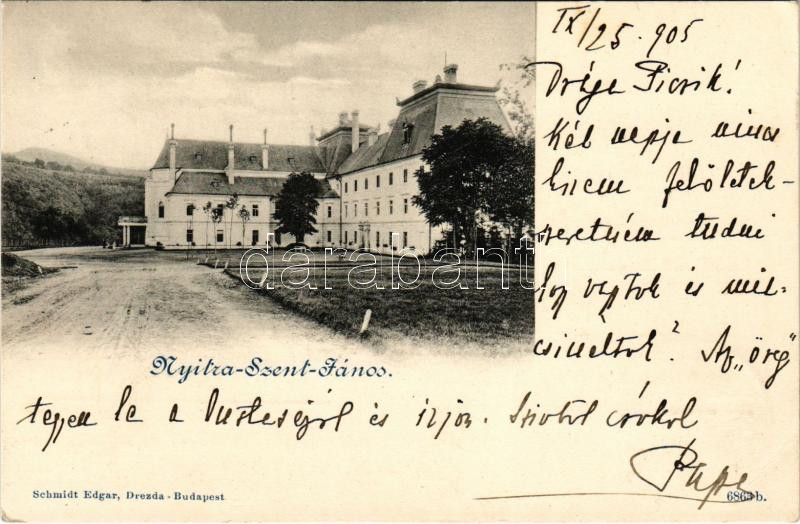 IX/25. 905
Drága Picrik!
Két napja nincs
hirem felőletek-
szeretném tudni
hogy vagytok és mit
csináltok? Az „öreg"
tegyen le a lustaságról és irjon. Szivből csókol
Papa
darabanth
Nyitra-Szent-János.
Schmidt Edgar, Drezda - Budapest
6863 b.